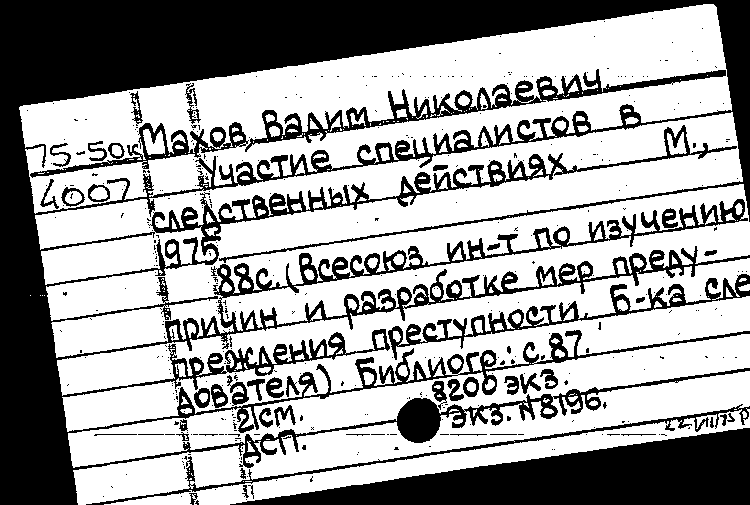 Махов, Вадим Николаевич.
75-50к
Участие специалистов в
4007
следственных действиях. М.,
1975
88с. (Всесоюз. ин-т по изучению
причин и разработке мер преду-
преждения преступности. Б-ка сле
дователя). Библиогр.: с. 87.
21см. 8200 экз.
ДСП. Экз. N8196.
22.VIII75